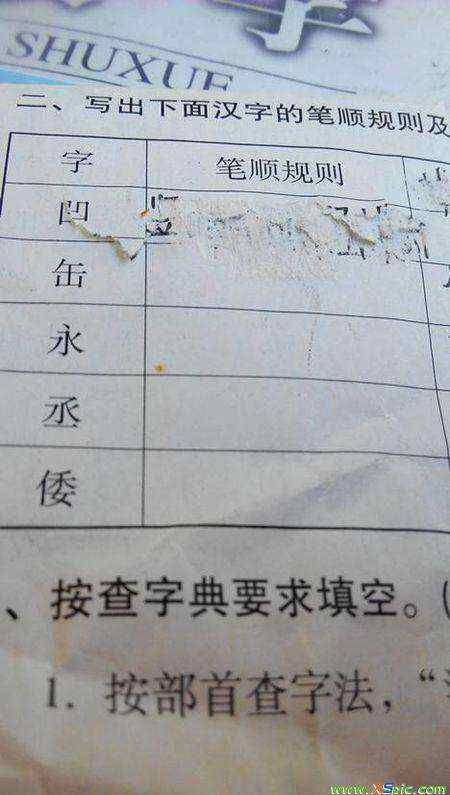 SHUXUE
二、写出下面汉字的笔顺规则及
字 笔顺规则
凹
缶
永
丞
倭
、按查字典要求填空。(
1. 按部首查字法，“
www.XSpic.com